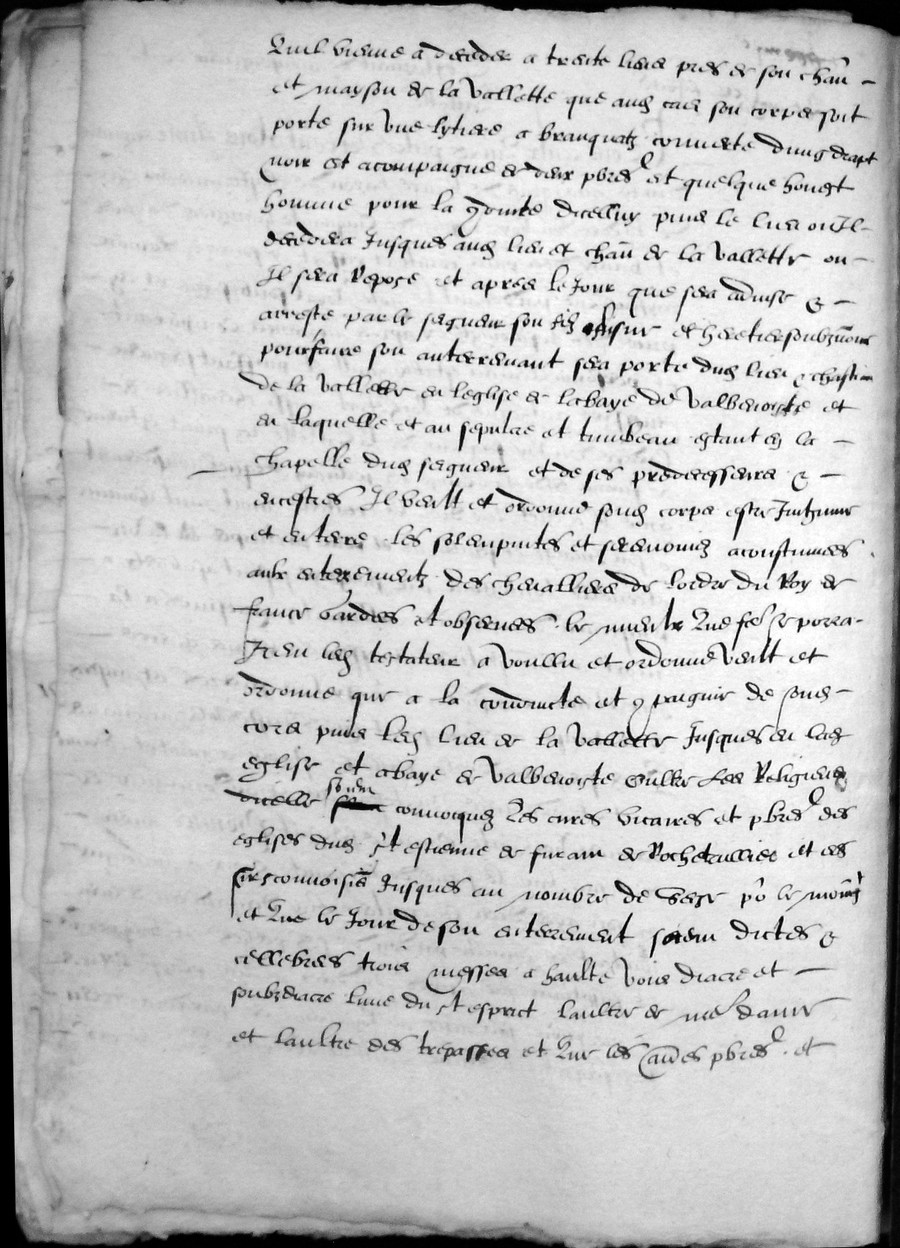 Quil vienne a deceder a trente lieux pres de son chau
et mayson de la Vallette que aud cas son corps soit
porte sur une lytiere a branquatz couverte dung drapt
noir et acompaigne de deux pbres et quelque honest
homme pour la conduite dicelluy puis le lieu ou Il
decedera Jusques aud lieu et chau de la Vallette ou
Il sera Repose et apres le Jour que sera advise &
arreste par le seigneur son filz et heretier
pour faire son enterrement sera porte dud lieu & chasteau
de la Vallette en leglise de labaye de Valbenoiste et
en laquelle et au sepulcre et tumbeau estant en la
chapelle dud seigneur et de ses predecesseurs &
encestres Il veult et ordonne sond corps estre Inhume
et enterre les solempnites et seremonies acoustumees
aulx enterrementz des chevalliers de lordre du Roy de
france gardees et observees le mieulx Que fere se porra
Item led testateur a voullu et ordonne veult et
ordonne que a la conduicte et compaignie de sond
corps puis led lieu de la Vallette Jusques en lad
eglise et abaye de Valbenoiste oultre les Religieux
dicelle soient convocques les cures vicaires et pbres des
eglises dud St estienne de furan de Rochetaillee et des
sirconvoisins Jusques au nombre de seze po le moings
et Que le Jour de son enterrement soient dictes &
cellebrees trois messes a haulte voix diacre et
subzdiacre lune du st esprit laultre de nre dame
et laultre des trepasses et Que les autres pbres et